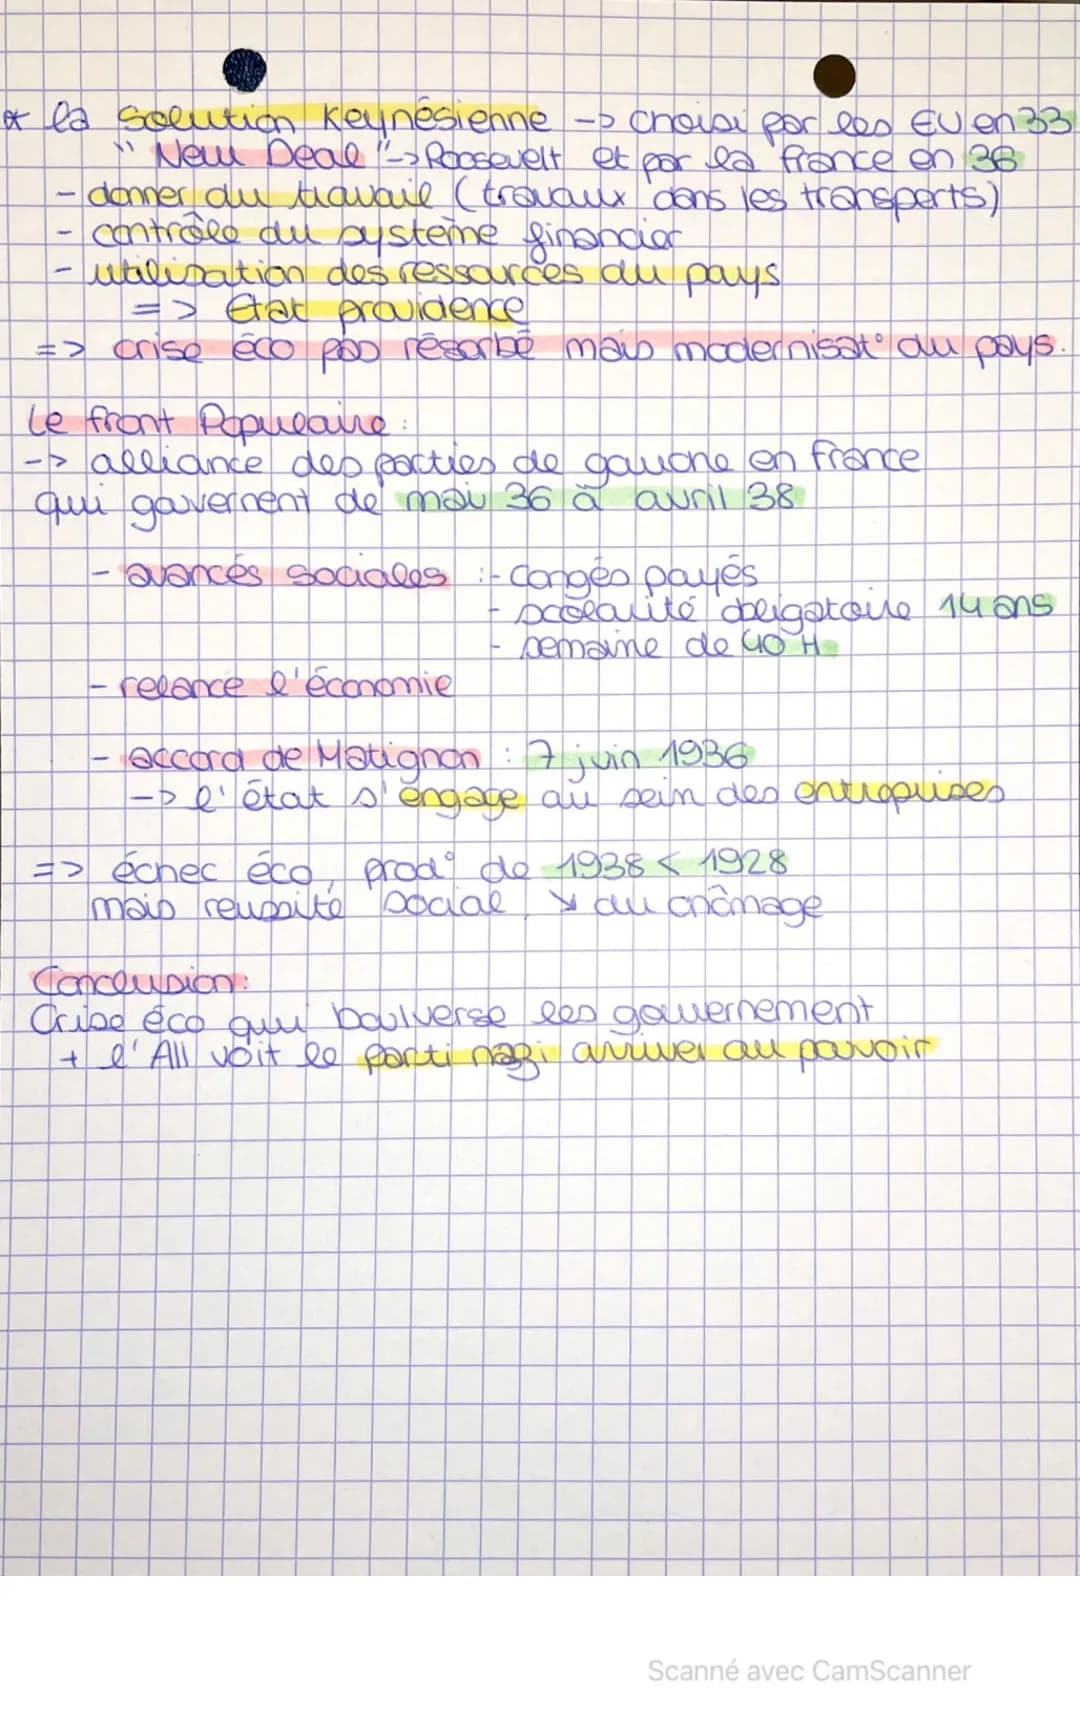 * la solution Keynésienne -> choisi par les EU en 33
" New Deal " -> Roosevelt et par la france en 36
- donner du travail (travaux dans les transports)
- contrôle du système financier
- utilisation des ressources du pays
=> Etat providence
=> crise éco pas résorbé mais modernisat° du pays.
Le front Populaire :
-> alliance des parties de gauche en france
qui gouvernent de mai 36 à avril 38
- avancés sociales : - congés payés
- scolarité obligatoire 14 ans
- semaine de 40 H
- relance l'économie
- accord de Matignon : 7 juin 1936
-> l'état s'engage au sein des entreprises
=> échec éco, prod° de 1938 < 1928
mais reussite social, ↘ du chômage
Conclusion:
Crise éco qui boulverse les gouvernement
+ l'All voit le parti nazi arriver au pouvoir
Scanné avec CamScanner